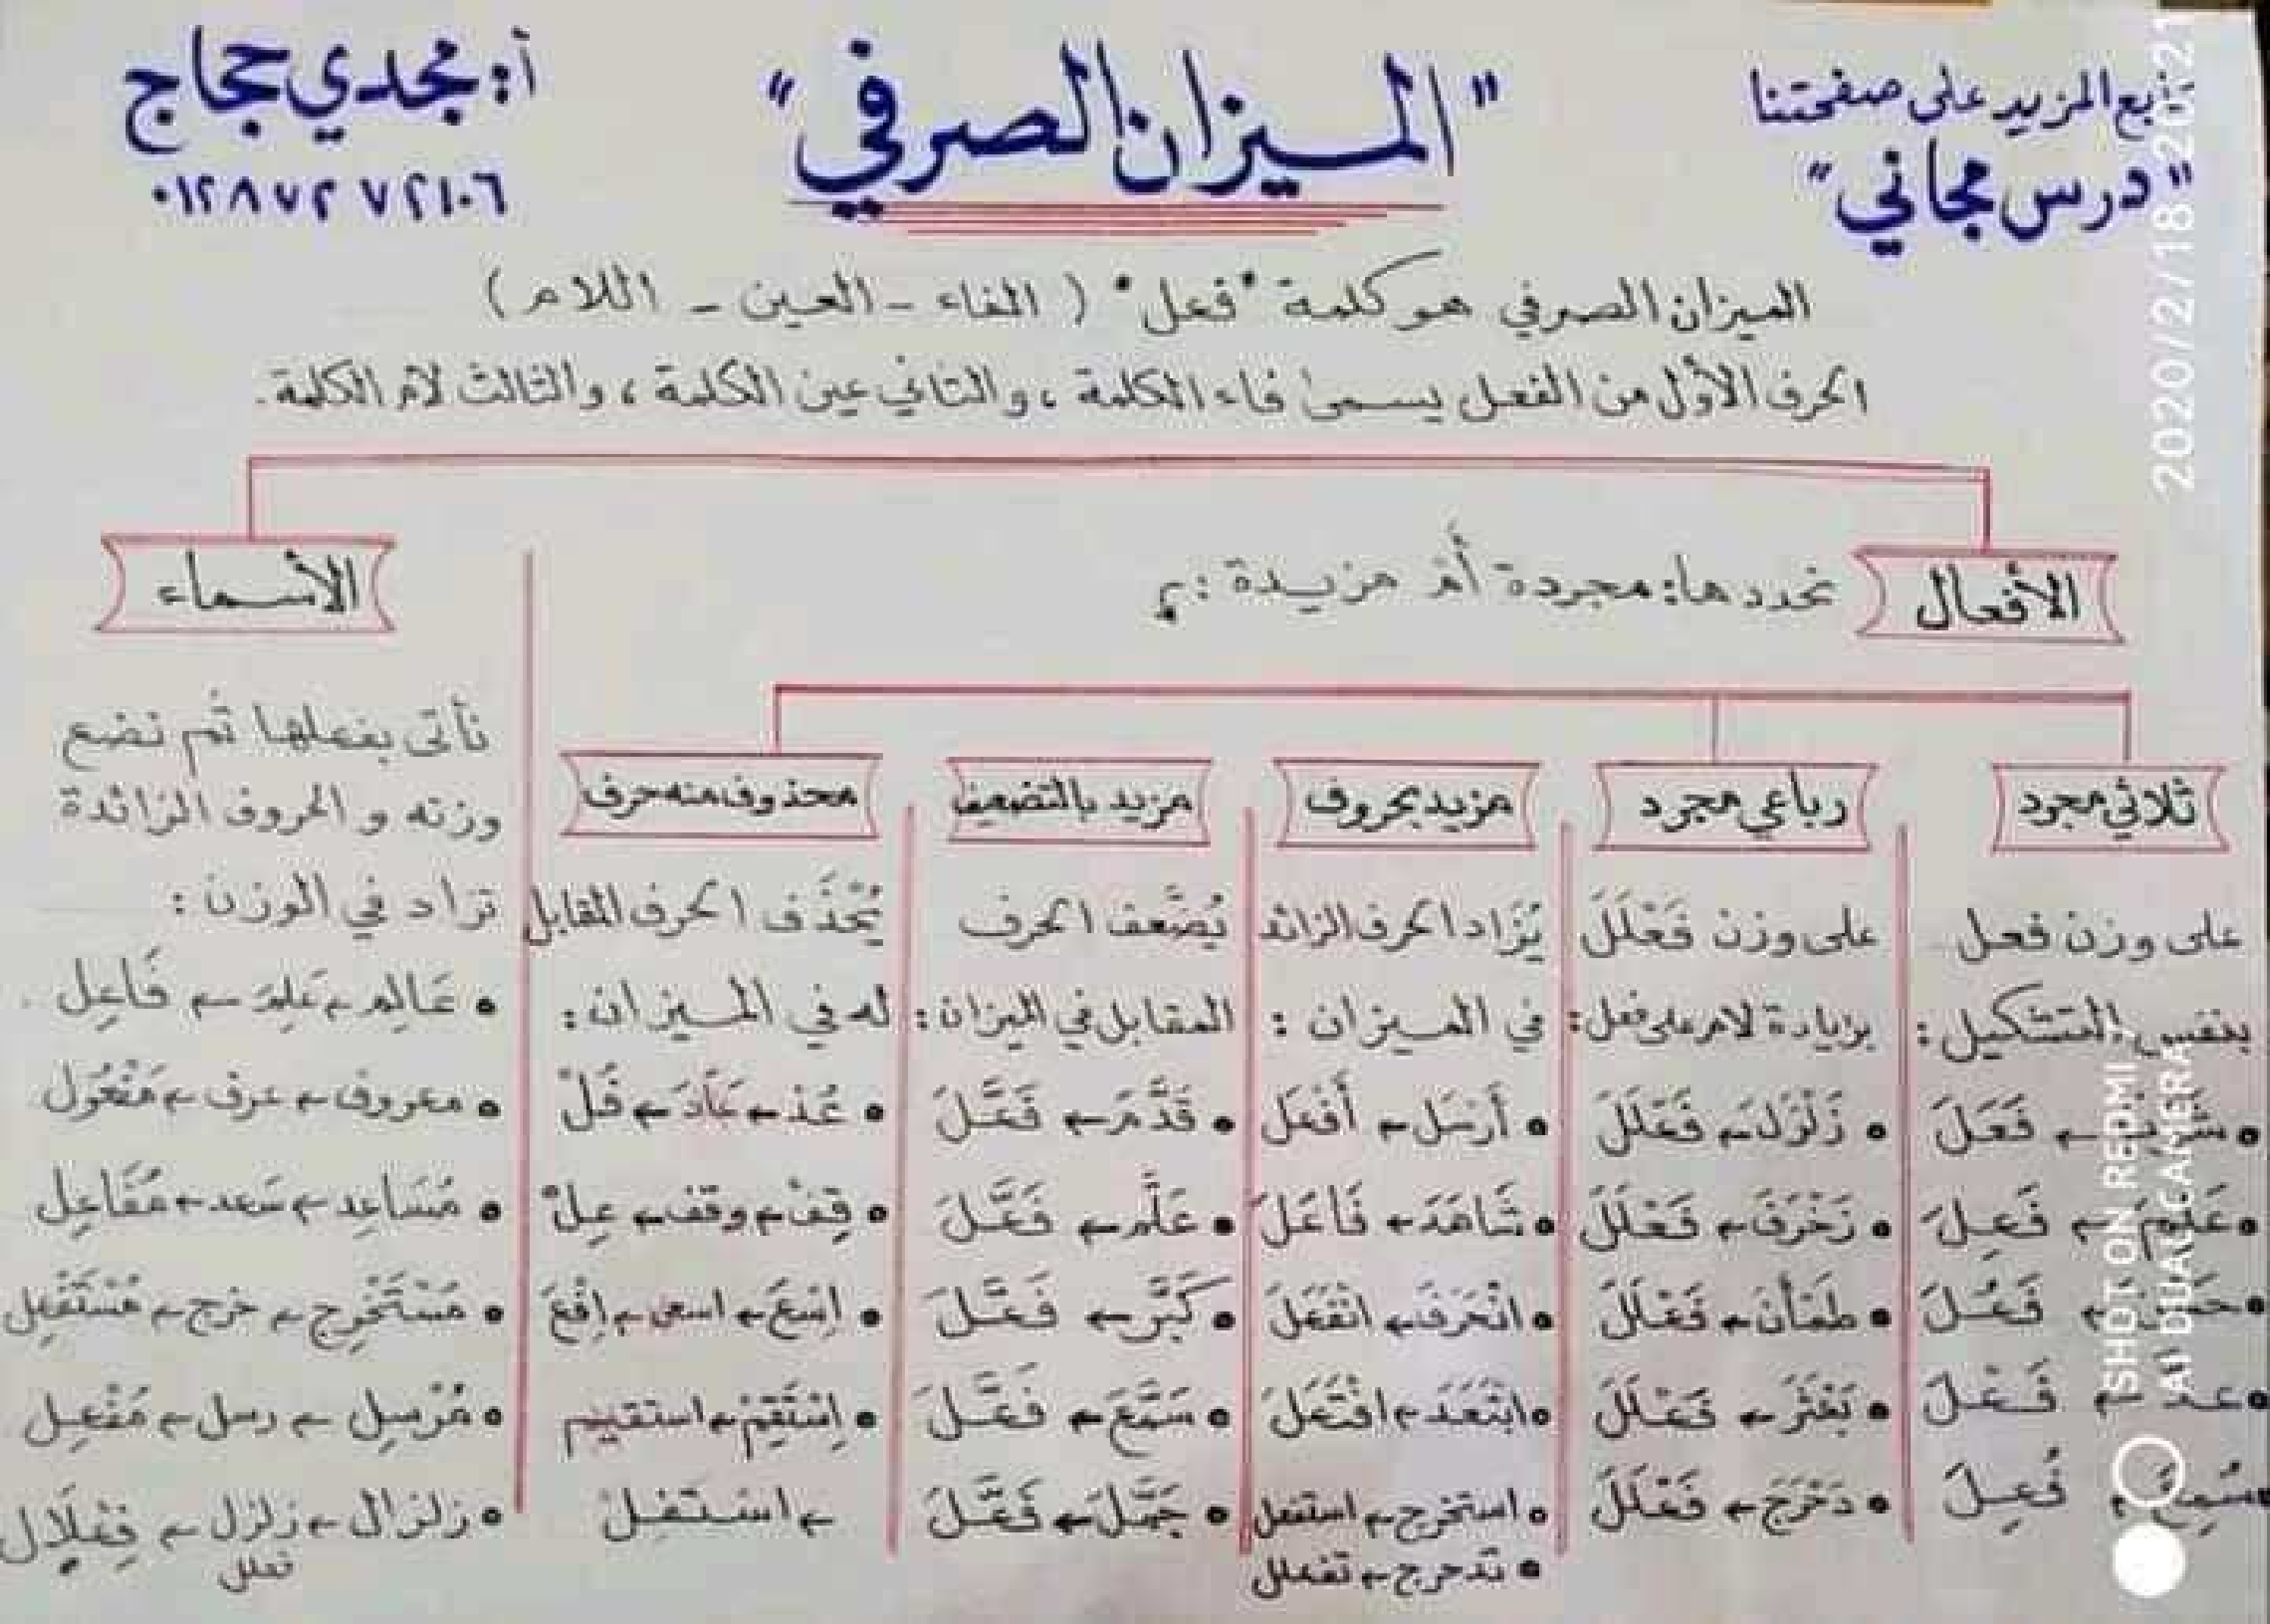 تابع المزيد على صفحتنا
"درس مجاني"
"الميزان الصرفي"
أ: مجدي حجاج
٠١٢٨٧٢٧٢١٠٦
الميزان الصرفي هو كلمة "فعل" (الفاء - العين - اللام)
الحرف الأول من الفعل يسمى فاء الكلمة، والثاني عين الكلمة، والثالث لام الكلمة.
الأفعال
نحددها: مجردة أم مزيدة:
ثلاثي مجرد
على وزن فعل
بنفس التشكيل:
← فَعَلَ
عَلِمَ ← فَعِلَ
← فَعُلَ
← فَعْلَ
سُمِعَ ← فُعِلَ
رباعي مجرد
على وزن فَعْلَلَ
بزيادة لام على فعل:
زَلْزَلَ ← فَعْلَلَ
زَخْرَفَ ← فَعْلَلَ
طَمْأَنَ ← فَعْلَلَ
بَعْثَرَ ← فَعْلَلَ
دَحْرَجَ ← فَعْلَلَ
مزيد بحروف
يُزَاد الحرف الزائد
في الميزان:
أَرْسَلَ ← أَفْعَلَ
شَاهَدَ ← فَاعَلَ
انْحَرَفَ ← انْفَعَلَ
ابْتَعَدَ ← افْتَعَلَ
استخرج ← استفعل
تدحرج ← تفعلل
مزيد بالتضعيف
يُضَعَّف الحرف
المقابل في الميزان:
قَدَّمَ ← فَعَّلَ
عَلَّمَ ← فَعَّلَ
كَبَّرَ ← فَعَّلَ
سَمَّعَ ← فَعَّلَ
جَمَّلَ ← فَعَّلَ
محذوف منه حرف
يُحْذَف الحرف المقابل
له في الميزان:
عُدْ ← عَادَ ← فُلْ
قِفْ ← وقف ← عِلْ
اِسْعَ ← اسعى ← اِفْعَ
اِسْتَقِمْ ← استقيم
← اسْتَفِلْ
الأسماء
نأتي بفعلها ثم نضع
وزنه و الحروف الزائدة
تزاد في الوزن:
عَالِم ← عَلِمَ ← فَاعِل
معروف ← عرف ← مَفْعُول
مُسَاعِد ← سَعد ← مُفَاعِل
مُسْتَخْرِج ← خرج ← مُسْتَفْعِل
مُرْسِل ← رسل ← مُفْعِل
زلزال ← زلزل ← فِعْلَال
فعلل
2020/2/18 20:21
SHOT ON REDMI 7
AI DUAL CAMERA